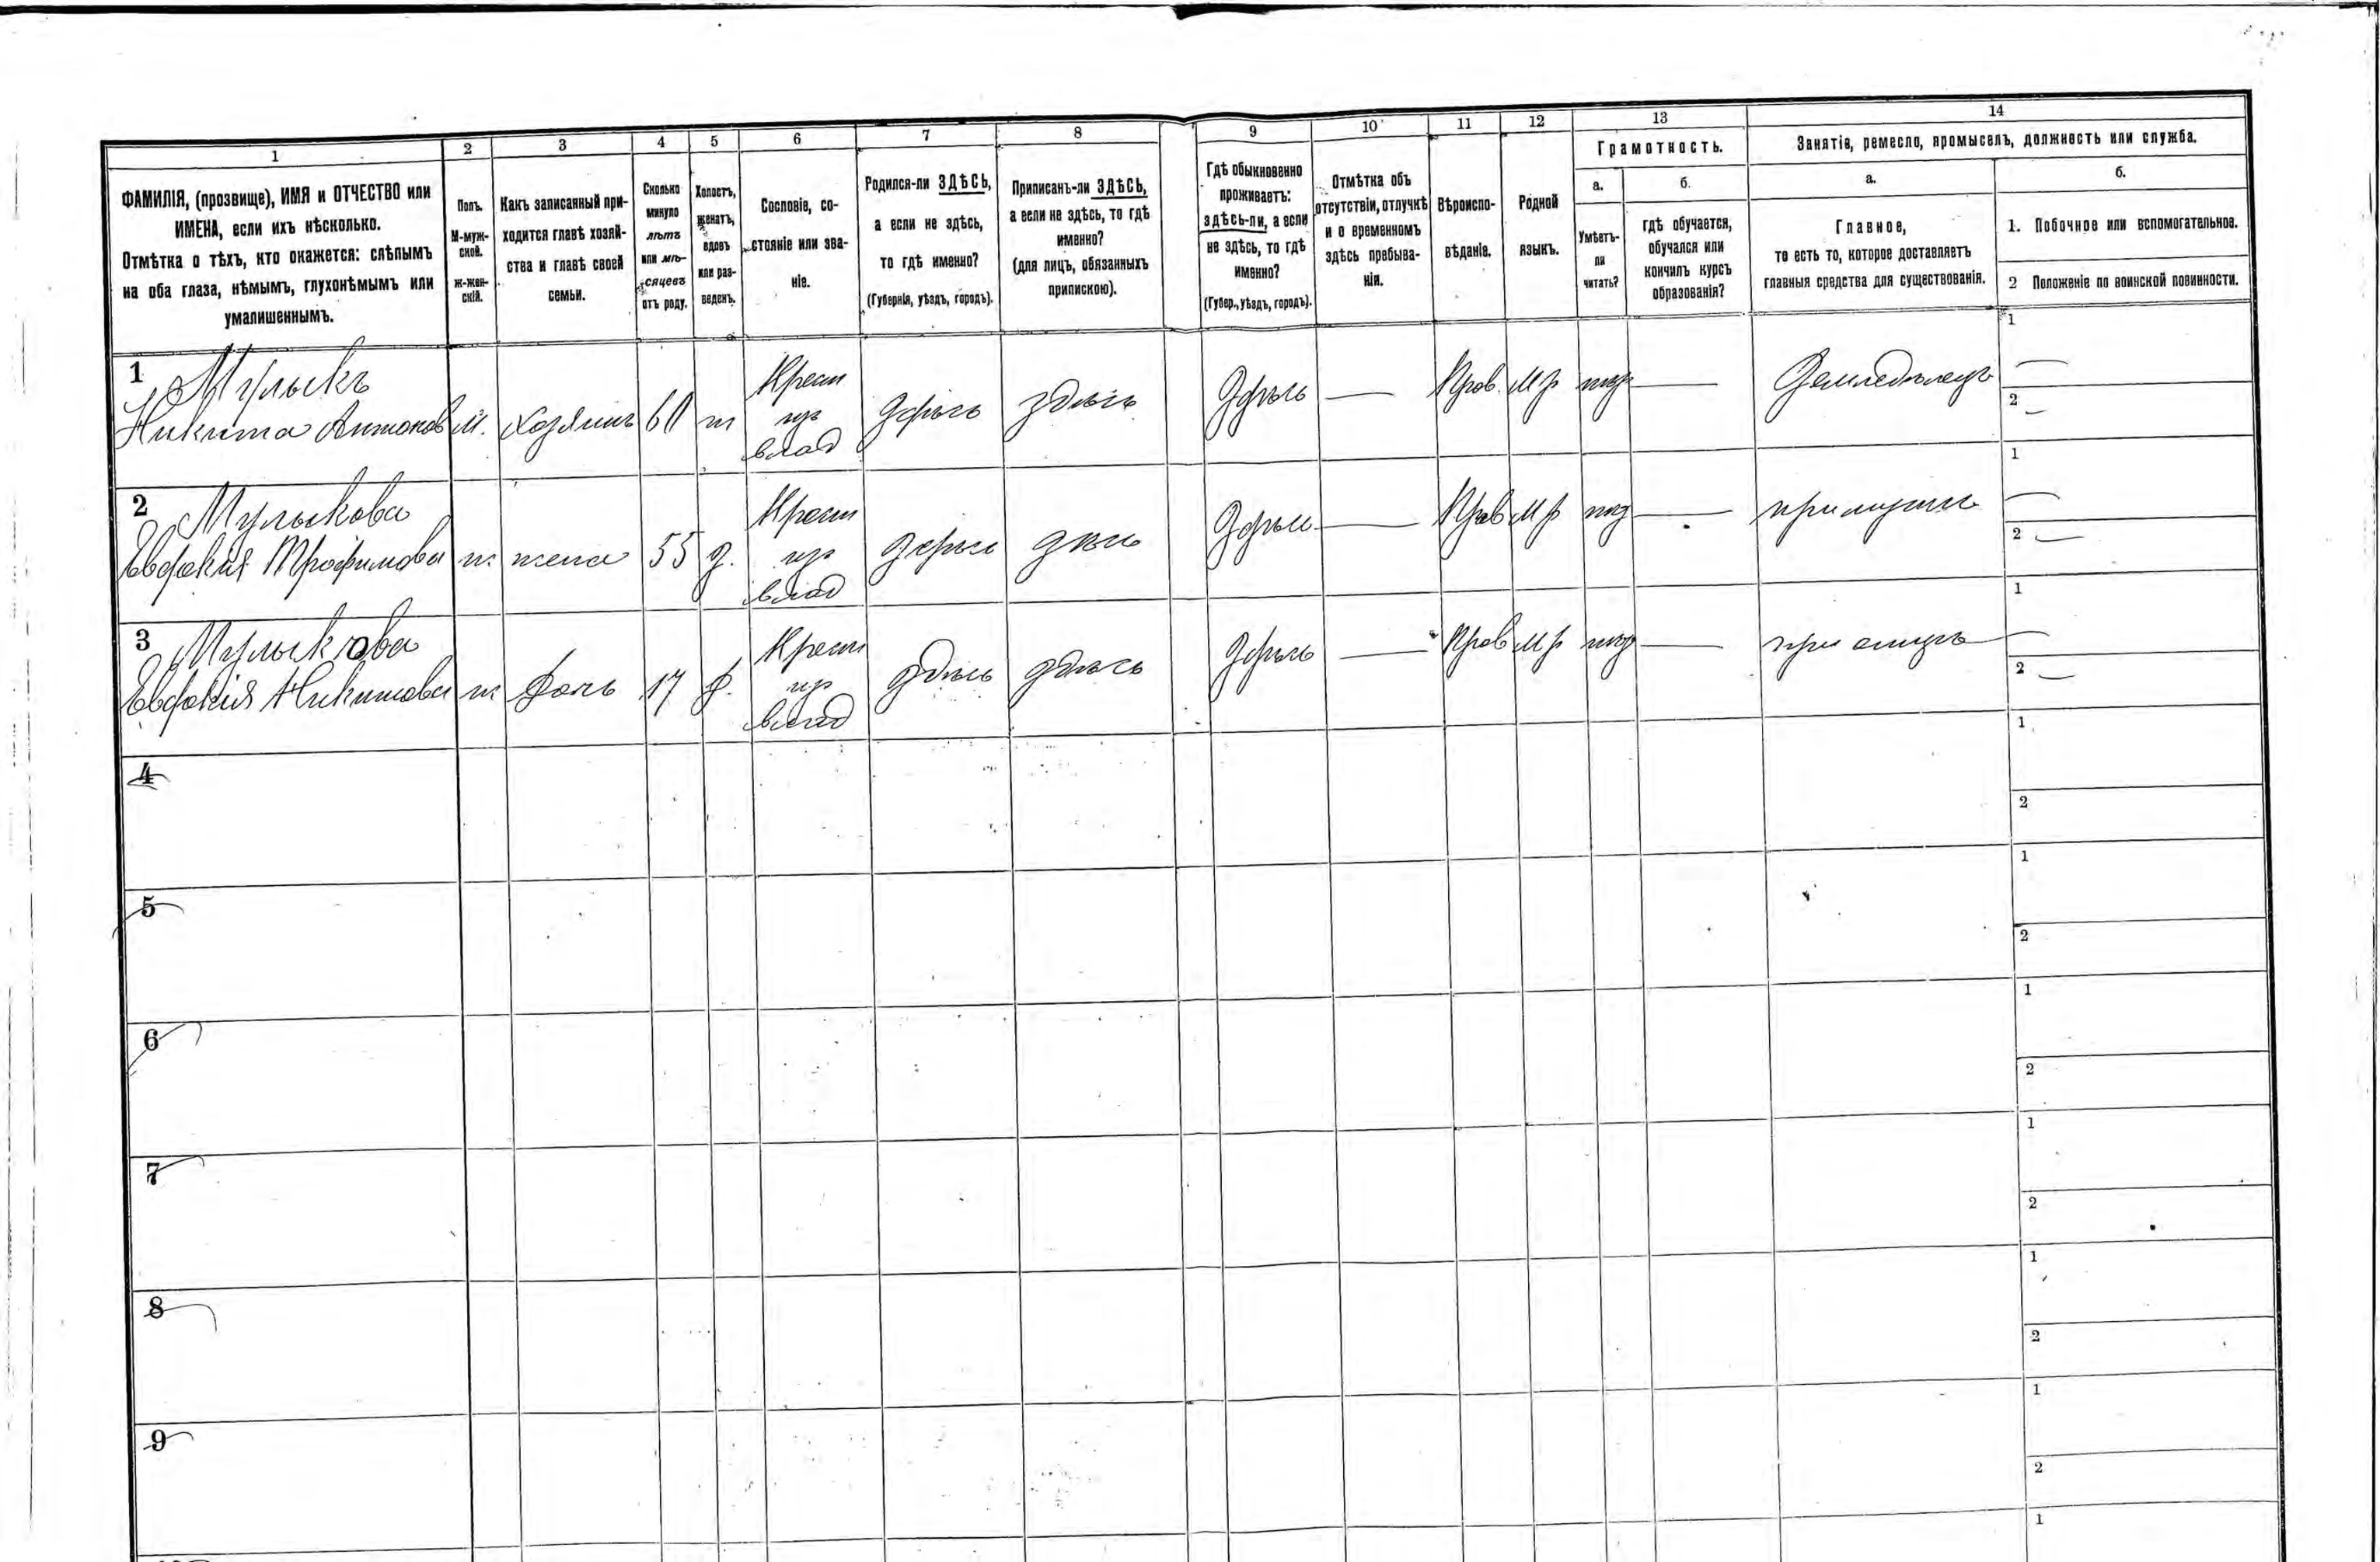 1
2
3
4
5
6
7
8
9
10
11
12
13
14
ФАМИЛІЯ, (прозвище), ИМЯ и ОТЧЕСТВО или
ИМЕНА, если ихъ нѣсколько.
Отмѣтка о тѣхъ, кто окажется: слѣпымъ
на оба глаза, нѣмымъ, глухонѣмымъ или
умалишеннымъ.
Полъ.
М-муж-
ской.
ж-жен-
скій.
Какъ записанный при-
ходится главѣ хозяй-
ства и главѣ своей
семьи.
Сколько
минуло
лѣтъ
или мѣ-
сяцевъ
отъ роду.
Холостъ,
женатъ,
вдовъ
или раз-
веденъ.
Сословіе, со-
стояніе или зва-
ніе.
Родился-ли ЗДѢСЬ,
а если не здѣсь,
то гдѣ именно?
(Губернія, уѣздъ, городъ).
Приписанъ-ли ЗДѢСЬ,
а если не здѣсь, то гдѣ
именно?
(для лицъ, обязанныхъ
припискою).
Гдѣ обыкновенно
проживаетъ:
здѣсь-ли, а если
не здѣсь, то гдѣ
именно?
(Губер., уѣздъ, городъ).
Отмѣтка объ
отсутствіи, отлучкѣ
и о временномъ
здѣсь пребыва-
ніи.
Вѣроиспо-
вѣданіе.
Родной
языкъ.
Грамотность.
а.
Умѣетъ-
ли
читать?
б.
гдѣ обучается,
обучался или
кончилъ курсъ
образованія?
Занятіе, ремесло, промыселъ, должность или служба.
а.
Главное,
то есть то, которое доставляетъ
главныя средства для существованія.
б.
1. Побочное или вспомогательное.
2 Положеніе по воинской повинности.
1 Мулыкъ
Никита Антоновъ
М.
хозяинъ
60
ж
Крест
из
влад
здѣсь
здѣсь
здѣсь
—
Прав.
М р
—
Земледѣлецъ
1 —
2 —
2 Мулыкова
Евдокія Трофимова
ж
жена
55
з.
Крест
из
влад
здѣсь
здѣсь
здѣсь
—
Прав
М р
—
при мужѣ
1 —
2 —
3 Мулыкова
Евдокія Никитова
ж
дочь
17
д.
Крест
из
влад
здѣсь
здѣсь
здѣсь
—
Прав
М р
—
при отцѣ
1 —
2 —
4
1
2
5
1
2
6
1
2
7
1
2
8
1
2
9
1
2
1